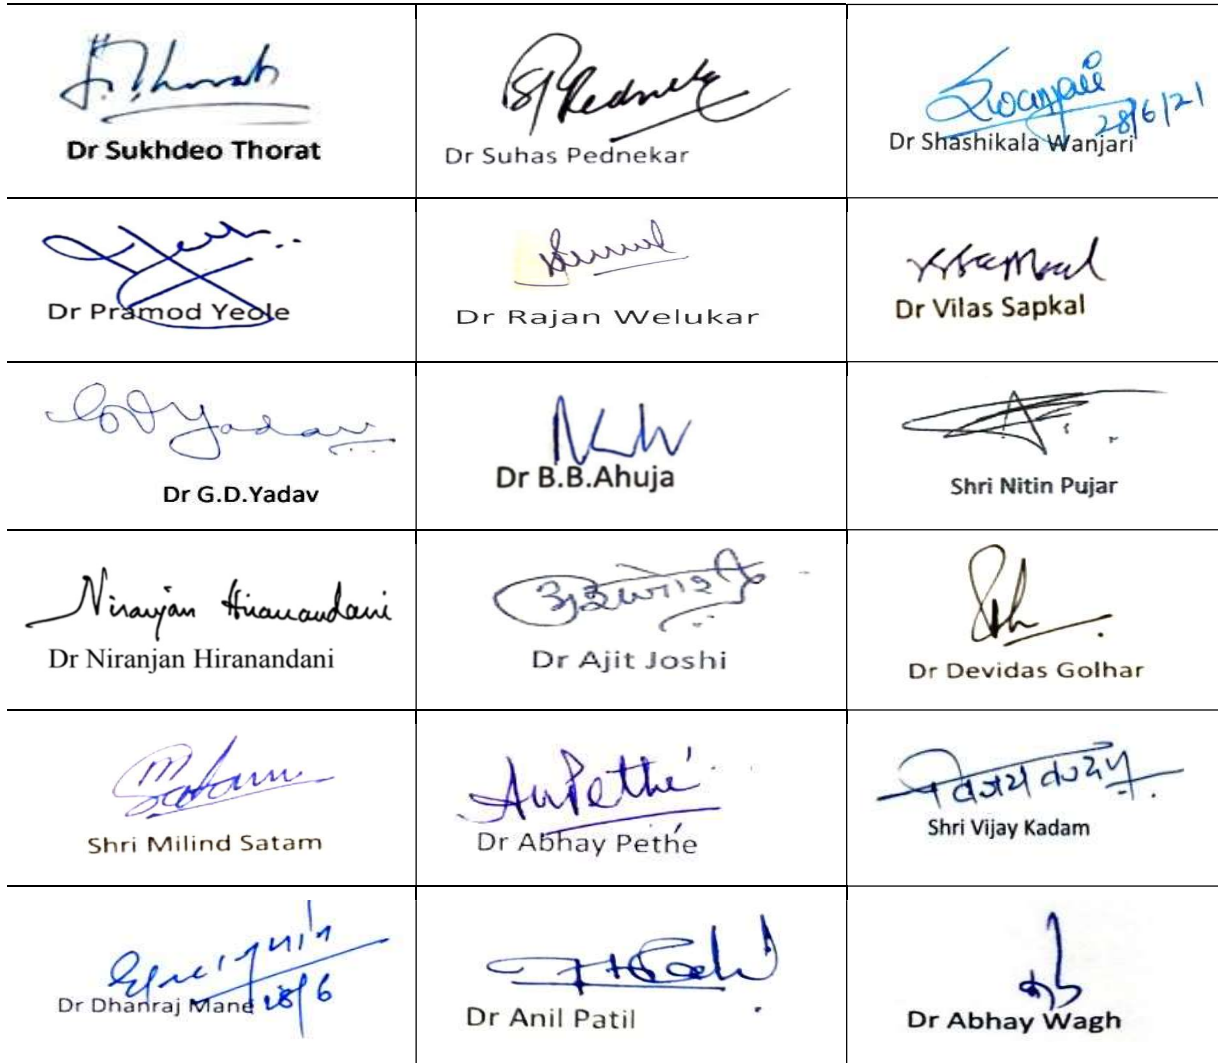 S. Thorat
Dr Sukhdeo Thorat
Pednekar
Dr Suhas Pednekar
28/6/21
Dr Shashikala Wanjari
Dr Pramod Yeole
Dr Rajan Welukar
Dr Vilas Sapkal
GDYadav
Dr G.D.Yadav
Dr B.B.Ahuja
Shri Nitin Pujar
Niranjan Hiranandani
Dr Niranjan Hiranandani
Dr Ajit Joshi
Dr Devidas Golhar
Satam
Shri Milind Satam
Pethe
Dr Abhay Pethe
Shri Vijay Kadam
28/6
Dr Dhanraj Mane
Dr Anil Patil
Dr Abhay Wagh